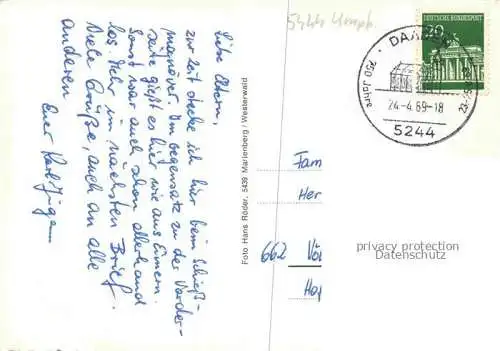 Liebe Eltern,
zur Zeit stecke ich hier beim Schieß-
manöver. Im Gegensatz zu der Vorder-
seite gießt es hier wie aus Eimern.
Sonst war auch schon allerhand
los. Mehr im nächsten Brief.
Viele Grüße, auch an alle
anderen
Euer Karl Jürgen
Foto Hans Röder, 5439 Marienberg / Westerwald
DEUTSCHE BUNDESPOST
20
DAADEN
750 Jahre
24.-4.69-18
5244
Fam
Her
662
privacy protection
Datenschutz